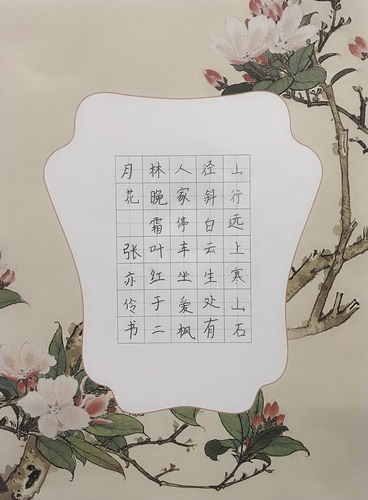 山行远上寒山石
径斜白云生处有
人家停车坐爰枫
林晚霜叶红于二
月花 张亦伶书